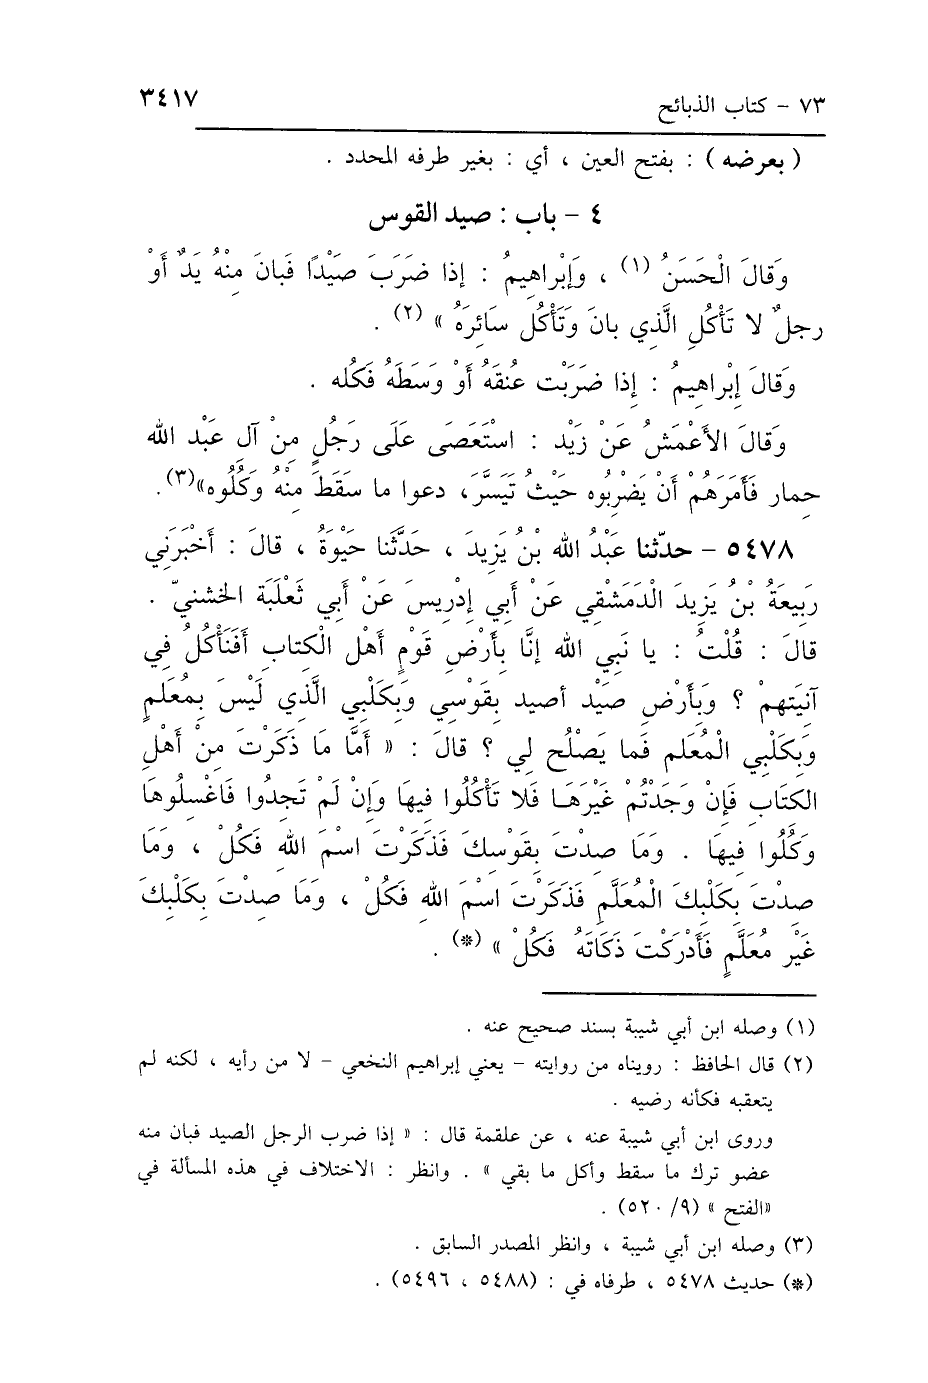 ٧٣ - كتاب الذبائح
٣٤١٧
( بعرضه ) : بفتح العين ، أي : بغير طرفه المحدد .
٤ - باب : صيد القوس
وَقالَ الْحَسَنُ (١) ، وَإبْراهِيمُ : إذا ضَرَبَ صَيْدًا فَبانَ مِنْهُ يَدٌ أَوْ
رِجلٌ لا تَأْكُلِ الَّذِي بانَ وَتَأْكُل سَائِرَهُ » (٢) .
وَقَالَ إِبْراهِيمُ : إِذا ضَرَبْت عُنقَهُ أَوْ وَسَطَهُ فَكُله .
وَقالَ الأَعْمَشُ عَنْ زَيْد : اسْتَعَصَى عَلَى رَجُلٍ مِنْ آلِ عَبْد الله
حِمار فَأَمَرَهُمْ أَنْ يَضْرِبُوه حَيْثُ تَيَسَّرَ، دعوا ما سَقَطَ مِنْهُ وَكُلُوه»(٣).
٥٤٧٨ - حدّثنا عَبْدُ الله بْنُ يَزِيدَ ، حَدَّثَنا حَيْوَةُ ، قالَ : أَخْبَرَنِي
رَبِيعَةُ بْنُ يَزِيدَ الْدَمَشْقِي عَنْ أَبِي إدْرِيسَ عَنْ أَبِي ثَعْلَبَة الخشنيّ .
قالَ : قُلْتُ : يا نَبِي الله إِنَّا بِأَرْضِ قَوْمٍ أَهْلِ الْكِتابِ أَفَنَأْكُلُ فِي
آنيَتِهِمْ ؟ وَبِأَرْضِ صَيْد أصيد بِقَوْسِي وَبِكَلْبِي الَّذِي لَيْسَ بِمُعَلمٍ
وَبِكَلْبِي الْمُعَلم فَما يَصْلُح لِي ؟ قالَ : « أَمَّا مَا ذَكَرْتَ مِنْ أَهْلِ
الكتَابِ فَإِنْ وَجَدْتُمْ غَيْرَهَا فَلا تَأْكُلُوا فِيهَا وَإِنْ لَمْ تَجِدُوا فَاغْسِلُوهَا
وَكُلُوا فِيهَا . وَمَا صِدْتَ بِقَوْسِكَ فَذَكَرْتَ اسْمَ اللهِ فَكُلْ ، وَمَا
صِدْتَ بِكَلْبِكَ الْمُعَلَّمِ فَذَكَرْتَ اسْمَ اللهِ فَكُلْ ، وَمَا صِدْتَ بِكَلْبِكَ
غَيْرِ مُعَلَّمٍ فَأَدْرَكْتَ ذَكَاتَهُ فَكُلْ » (*) .
(١) وصله ابن أبي شيبة بسند صحيح عنه .
(٢) قال الحافظ : رويناه من روايته - يعني إبراهيم النخعي - لا من رأيه ، لكنه لم
يتعقبه فكأنه رضيه .
وروى ابن أبي شيبة عنه ، عن علقمة قال : « إذا ضرب الرجل الصيد فبان منه
عضو ترك ما سقط وأكل ما بقي » . وانظر : الاختلاف في هذه المسألة في
«الفتح » (٩/ ٥٢٠) .
(٣) وصله ابن أبي شيبة ، وانظر المصدر السابق .
(*) حديث ٥٤٧٨ ، طرفاه في : (٥٤٨٨ ، ٥٤٩٦) .